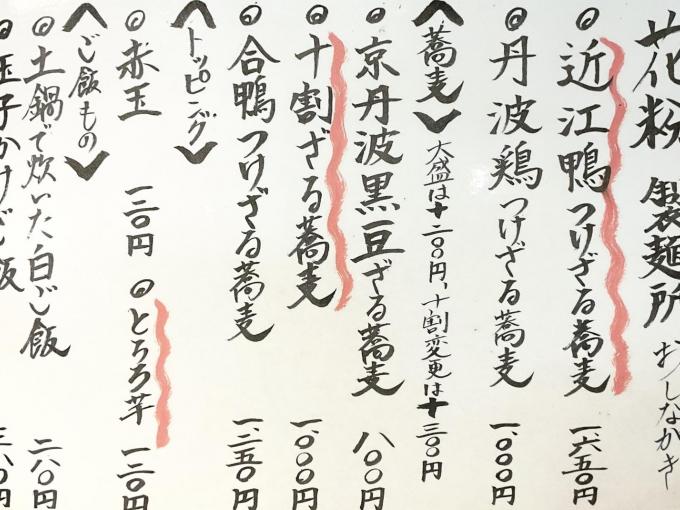 花粉 製麺所 おしながき
◎近江鴨つけざる蕎麦 一、六五〇円
◎丹波鶏つけざる蕎麦 一、〇〇〇円
〈蕎麦〉大盛は+二〇〇円、十割変更は+三〇〇円
◎京丹波黒豆ざる蕎麦 八〇〇円
◎十割ざる蕎麦 一、〇〇〇円
◎合鴨つけざる蕎麦 一、二五〇円
〈トッピング〉
◎赤玉 一三〇円 ◎とろろ芋 一二〇円
〈ご飯もの〉
◎土鍋で炊いた白ご飯 二八〇円
◎玉子かけご飯 三八〇円